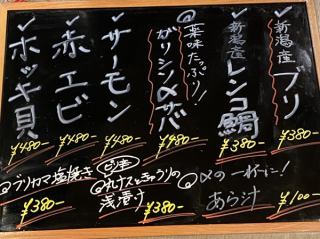 ✓新潟産ブリ
¥380-
✓新潟産レンコ鯛
¥380-
@薬味たっぷり!
ガリシンメサバ
¥980-
✓サーモン
¥480-
✓赤エビ
¥480-
✓ホッキ貝
¥480-
@〆の一杯に!
あら汁
¥100-
@丸ナスときゅうりの
浅漬け
¥380-
@ブリカマ塩焼き
¥380-